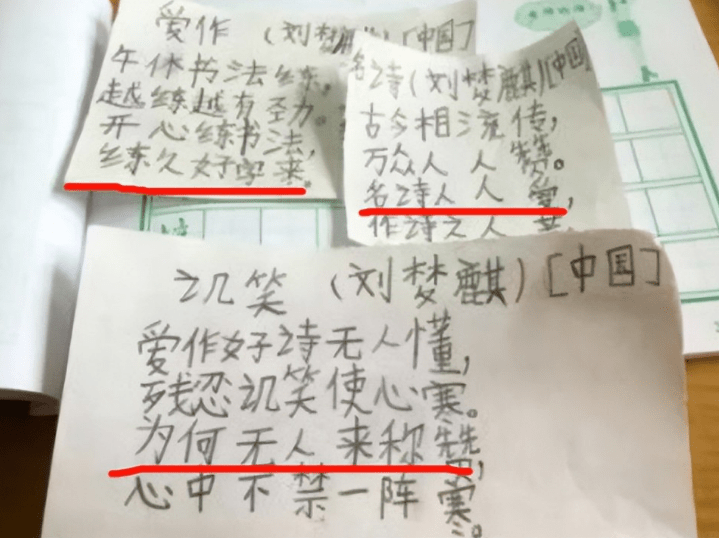 爱作 (刘梦麒)[中国]
午休书法练,
越练越有劲。
开心练书法,
练久好字来。
名诗(刘梦麒)[中国]
古今相流传,
万众人人赞。
名诗人人爱,
作诗之人
讥笑 (刘梦麒)[中国]
爱作好诗无人懂,
残忍讥笑使心寒。
为何无人来称赞,
心中不禁一阵寒。